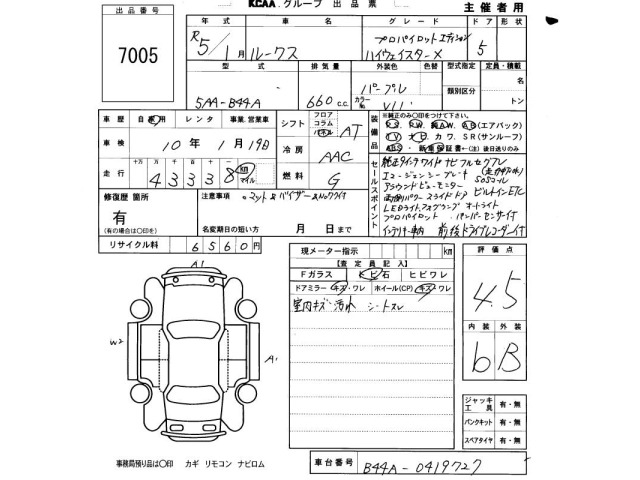 KCAA グループ 出品票
主催者用
出品番号
7005
年式 車名 グレード ドア 形状
R5/1月 ルークス プロパイロットエディション
ハイウェイスターX 5
型式 排気量 外装色 色替 型式指定 定員・積載
5AA-B44A 660 c.c. パープル 類別区分 名
カラーNo. トン
車歴 自家用 レンタ 事業.営業車
車検 10年 1月 19日
走行 十万 万 千 百 十 一 km マイル
43338
シフト フロア コラム パネル AT
冷房 AAC
燃料 G
装備品
※純正のみ〇印をつけて下さい。
P.S. P.W. 純A.W. A.B(エアバック)
T.V. ナビ. カワ. S.R(サンルーフ)
A.B.S 新車保証書←(注)後日送りのみ
セールスポイント
エマージェンシーブレーキ
SOSコール
アラウンドビューモニター
両側パワースライドドア ビルトインETC
LEDライト フォグランプ オートライト
プロパイロット
前後ドライブレコーダー付
修復歴 箇所
有
(有の場合は〇印)
注意事項
名変期日の短い方 月 日まで
リサイクル料 6560円
現メーター指示 km
【査定員記入】
Fガラス キズ 石 ヒビワレ
ドアミラー キズ・ワレ ホイール(CP) キズ・ワレ
室内キズ・汚れ シートスレ
評価点
4.5
内装 外装
b B
A1
W2
A1
ジャッキ工具 有・無
パンクキット 有・無
スペアタイヤ 有・無
事務局預り品は〇印 カギ リモコン ナビロム
車台番号 B44A-0419727